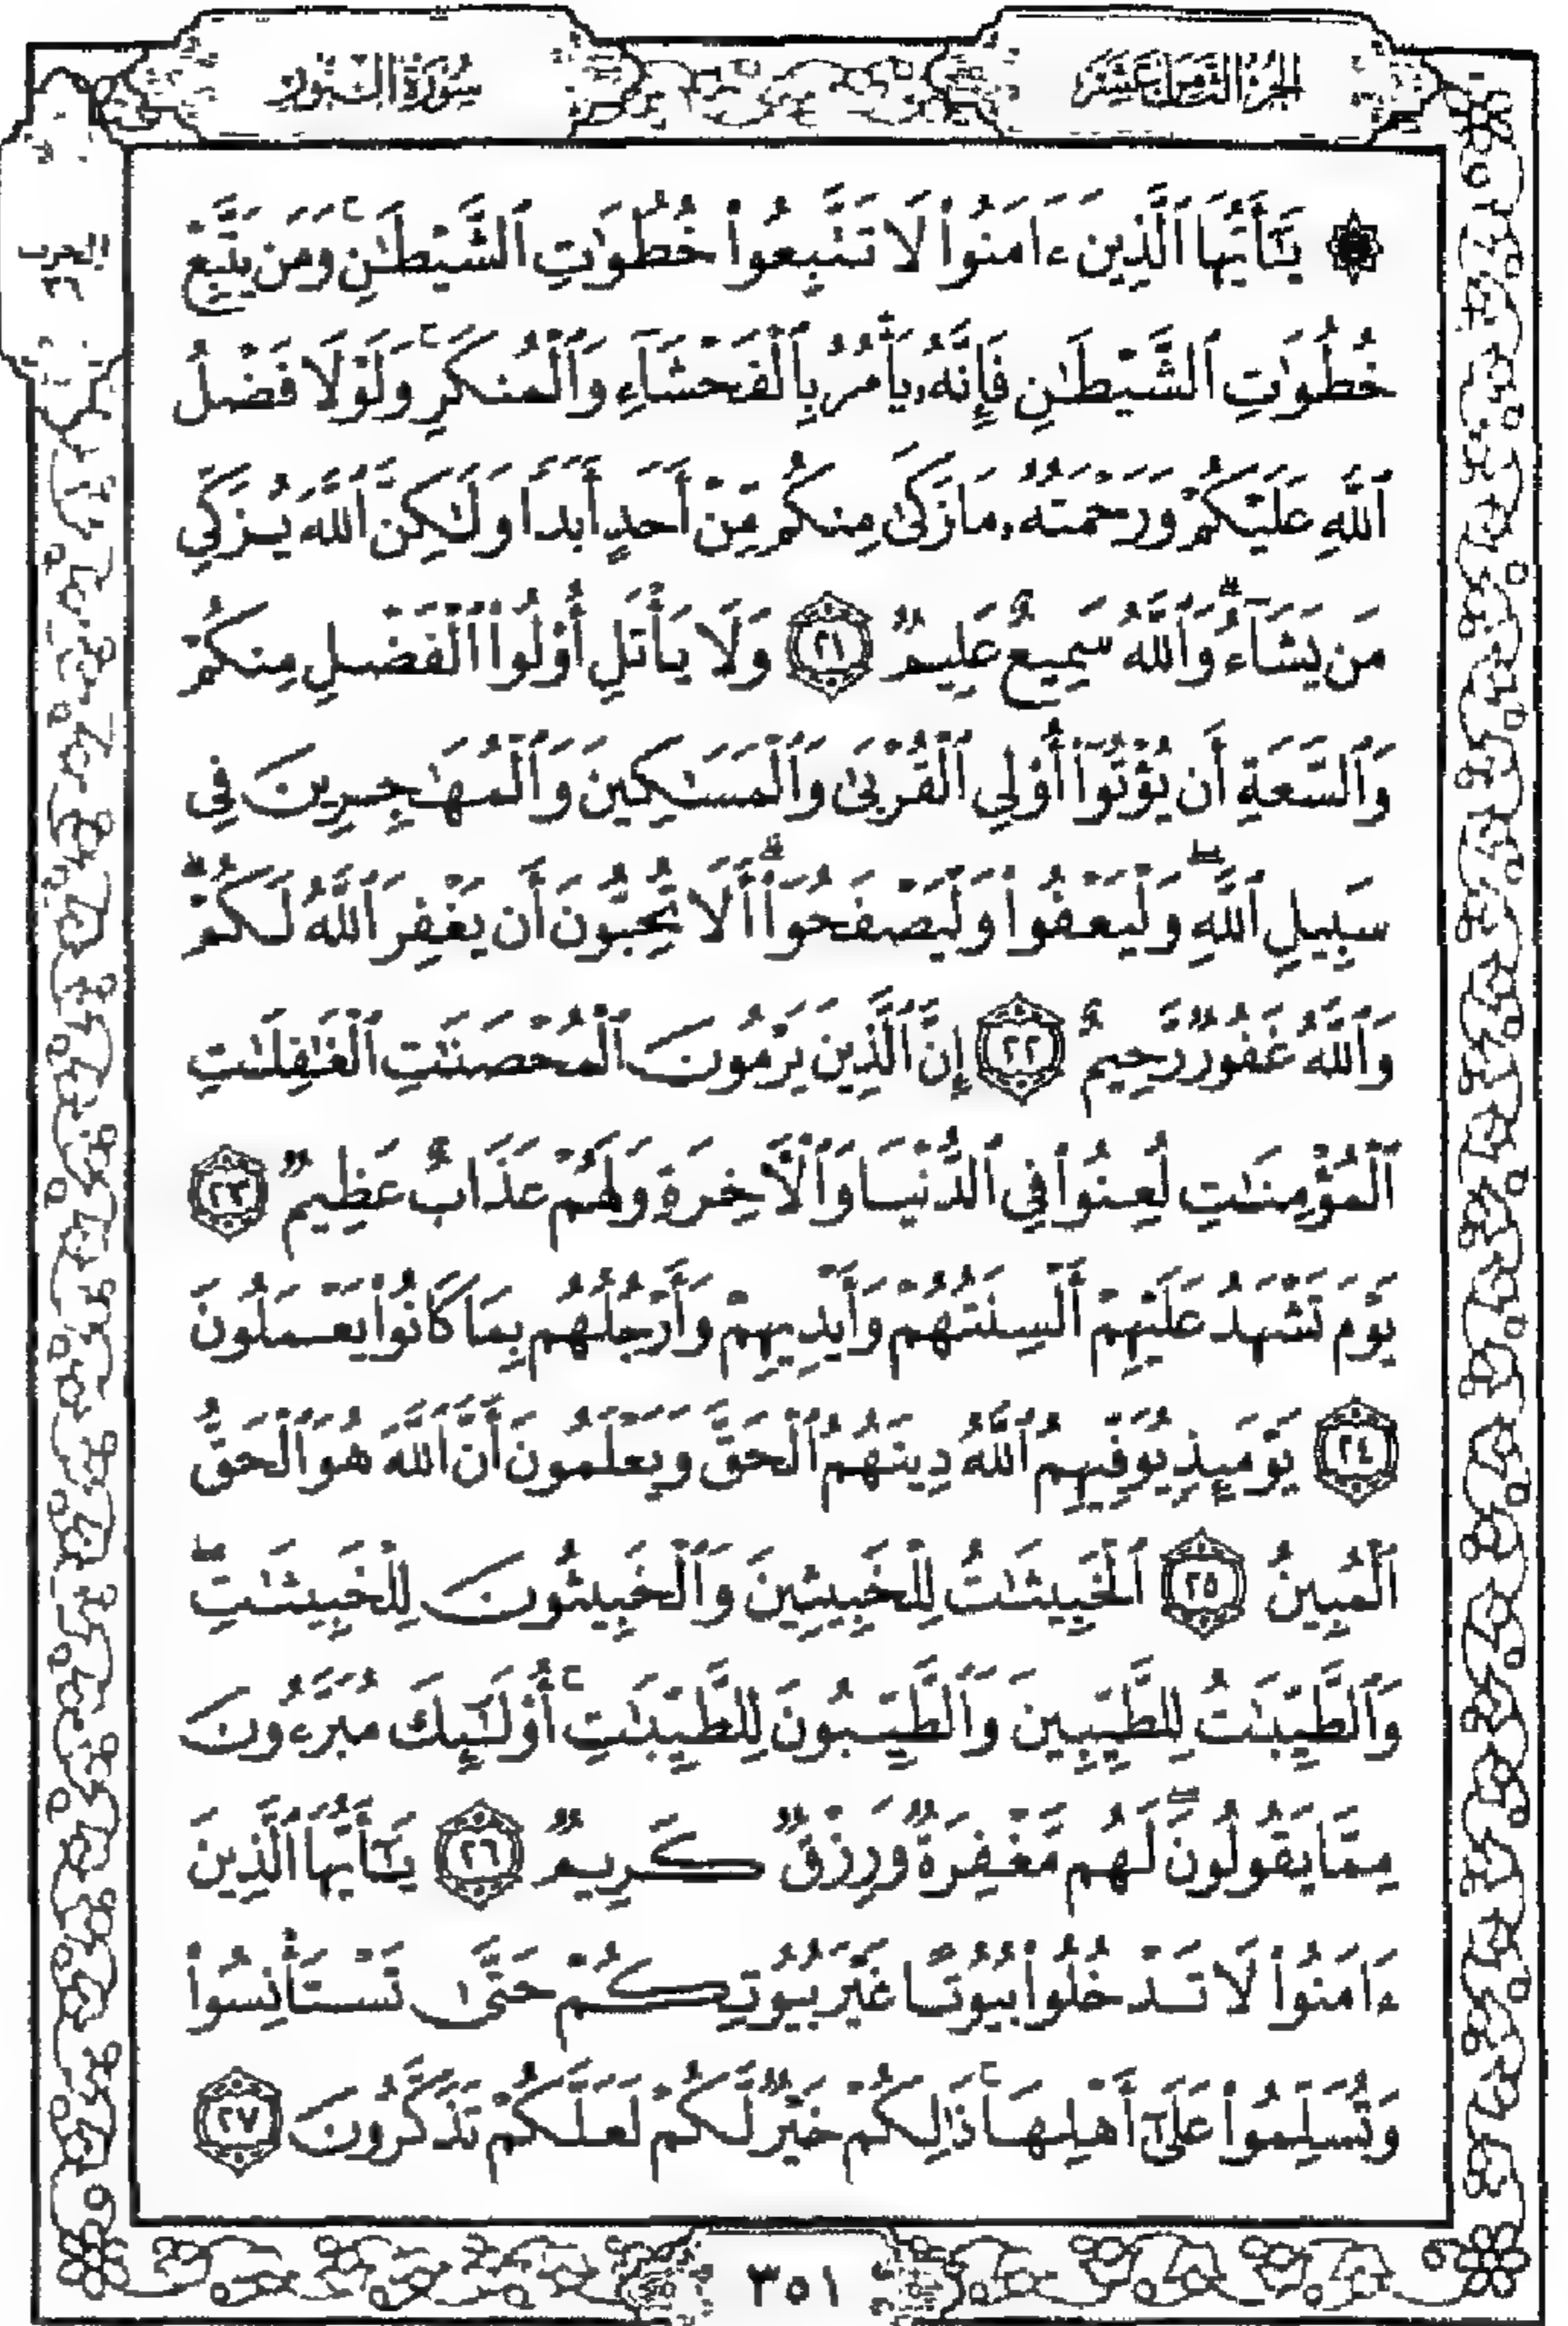 الجزء الثامن عشر
سورة النور
الحزب
٣٦
۞ يَـٰٓأَيُّهَا ٱلَّذِينَ ءَامَنُوا۟ لَا تَتَّبِعُوا۟ خُطُوَٰتِ ٱلشَّيْطَـٰنِ ۚ وَمَن يَتَّبِعْ
خُطُوَٰتِ ٱلشَّيْطَـٰنِ فَإِنَّهُۥ يَأْمُرُ بِٱلْفَحْشَآءِ وَٱلْمُنكَرِ ۚ وَلَوْلَا فَضْلُ
ٱللَّهِ عَلَيْكُمْ وَرَحْمَتُهُۥ مَا زَكَىٰ مِنكُم مِّنْ أَحَدٍ أَبَدًا وَلَـٰكِنَّ ٱللَّهَ يُزَكِّى
مَن يَشَآءُ ۗ وَٱللَّهُ سَمِيعٌ عَلِيمٌ ﴿٢١﴾ وَلَا يَأْتَلِ أُو۟لُوا۟ ٱلْفَضْلِ مِنكُمْ
وَٱلسَّعَةِ أَن يُؤْتُوٓا۟ أُو۟لِى ٱلْقُرْبَىٰ وَٱلْمَسَـٰكِينَ وَٱلْمُهَـٰجِرِينَ فِى
سَبِيلِ ٱللَّهِ ۖ وَلْيَعْفُوا۟ وَلْيَصْفَحُوٓا۟ ۗ أَلَا تُحِبُّونَ أَن يَغْفِرَ ٱللَّهُ لَكُمْ ۗ
وَٱللَّهُ غَفُورٌ رَّحِيمٌ ﴿٢٢﴾ إِنَّ ٱلَّذِينَ يَرْمُونَ ٱلْمُحْصَنَـٰتِ ٱلْغَـٰفِلَـٰتِ
ٱلْمُؤْمِنَـٰتِ لُعِنُوا۟ فِى ٱلدُّنْيَا وَٱلْـَٔاخِرَةِ وَلَهُمْ عَذَابٌ عَظِيمٌ ﴿٢٣﴾
يَوْمَ تَشْهَدُ عَلَيْهِمْ أَلْسِنَتُهُمْ وَأَيْدِيهِمْ وَأَرْجُلُهُم بِمَا كَانُوا۟ يَعْمَلُونَ
﴿٢٤﴾ يَوْمَئِذٍ يُوَفِّيهِمُ ٱللَّهُ دِينَهُمُ ٱلْحَقَّ وَيَعْلَمُونَ أَنَّ ٱللَّهَ هُوَ ٱلْحَقُّ
ٱلْمُبِينُ ﴿٢٥﴾ ٱلْخَبِيثَـٰتُ لِلْخَبِيثِينَ وَٱلْخَبِيثُونَ لِلْخَبِيثَـٰتِ ۖ
وَٱلطَّيِّبَـٰتُ لِلطَّيِّبِينَ وَٱلطَّيِّبُونَ لِلطَّيِّبَـٰتِ ۚ أُو۟لَـٰٓئِكَ مُبَرَّءُونَ
مِمَّا يَقُولُونَ ۖ لَهُم مَّغْفِرَةٌ وَرِزْقٌ كَرِيمٌ ﴿٢٦﴾ يَـٰٓأَيُّهَا ٱلَّذِينَ
ءَامَنُوا۟ لَا تَدْخُلُوا۟ بُيُوتًا غَيْرَ بُيُوتِكُمْ حَتَّىٰ تَسْتَأْنِسُوا۟
وَتُسَلِّمُوا۟ عَلَىٰٓ أَهْلِهَا ۚ ذَٰلِكُمْ خَيْرٌ لَّكُمْ لَعَلَّكُمْ تَذَكَّرُونَ ﴿٢٧﴾
٣٥١